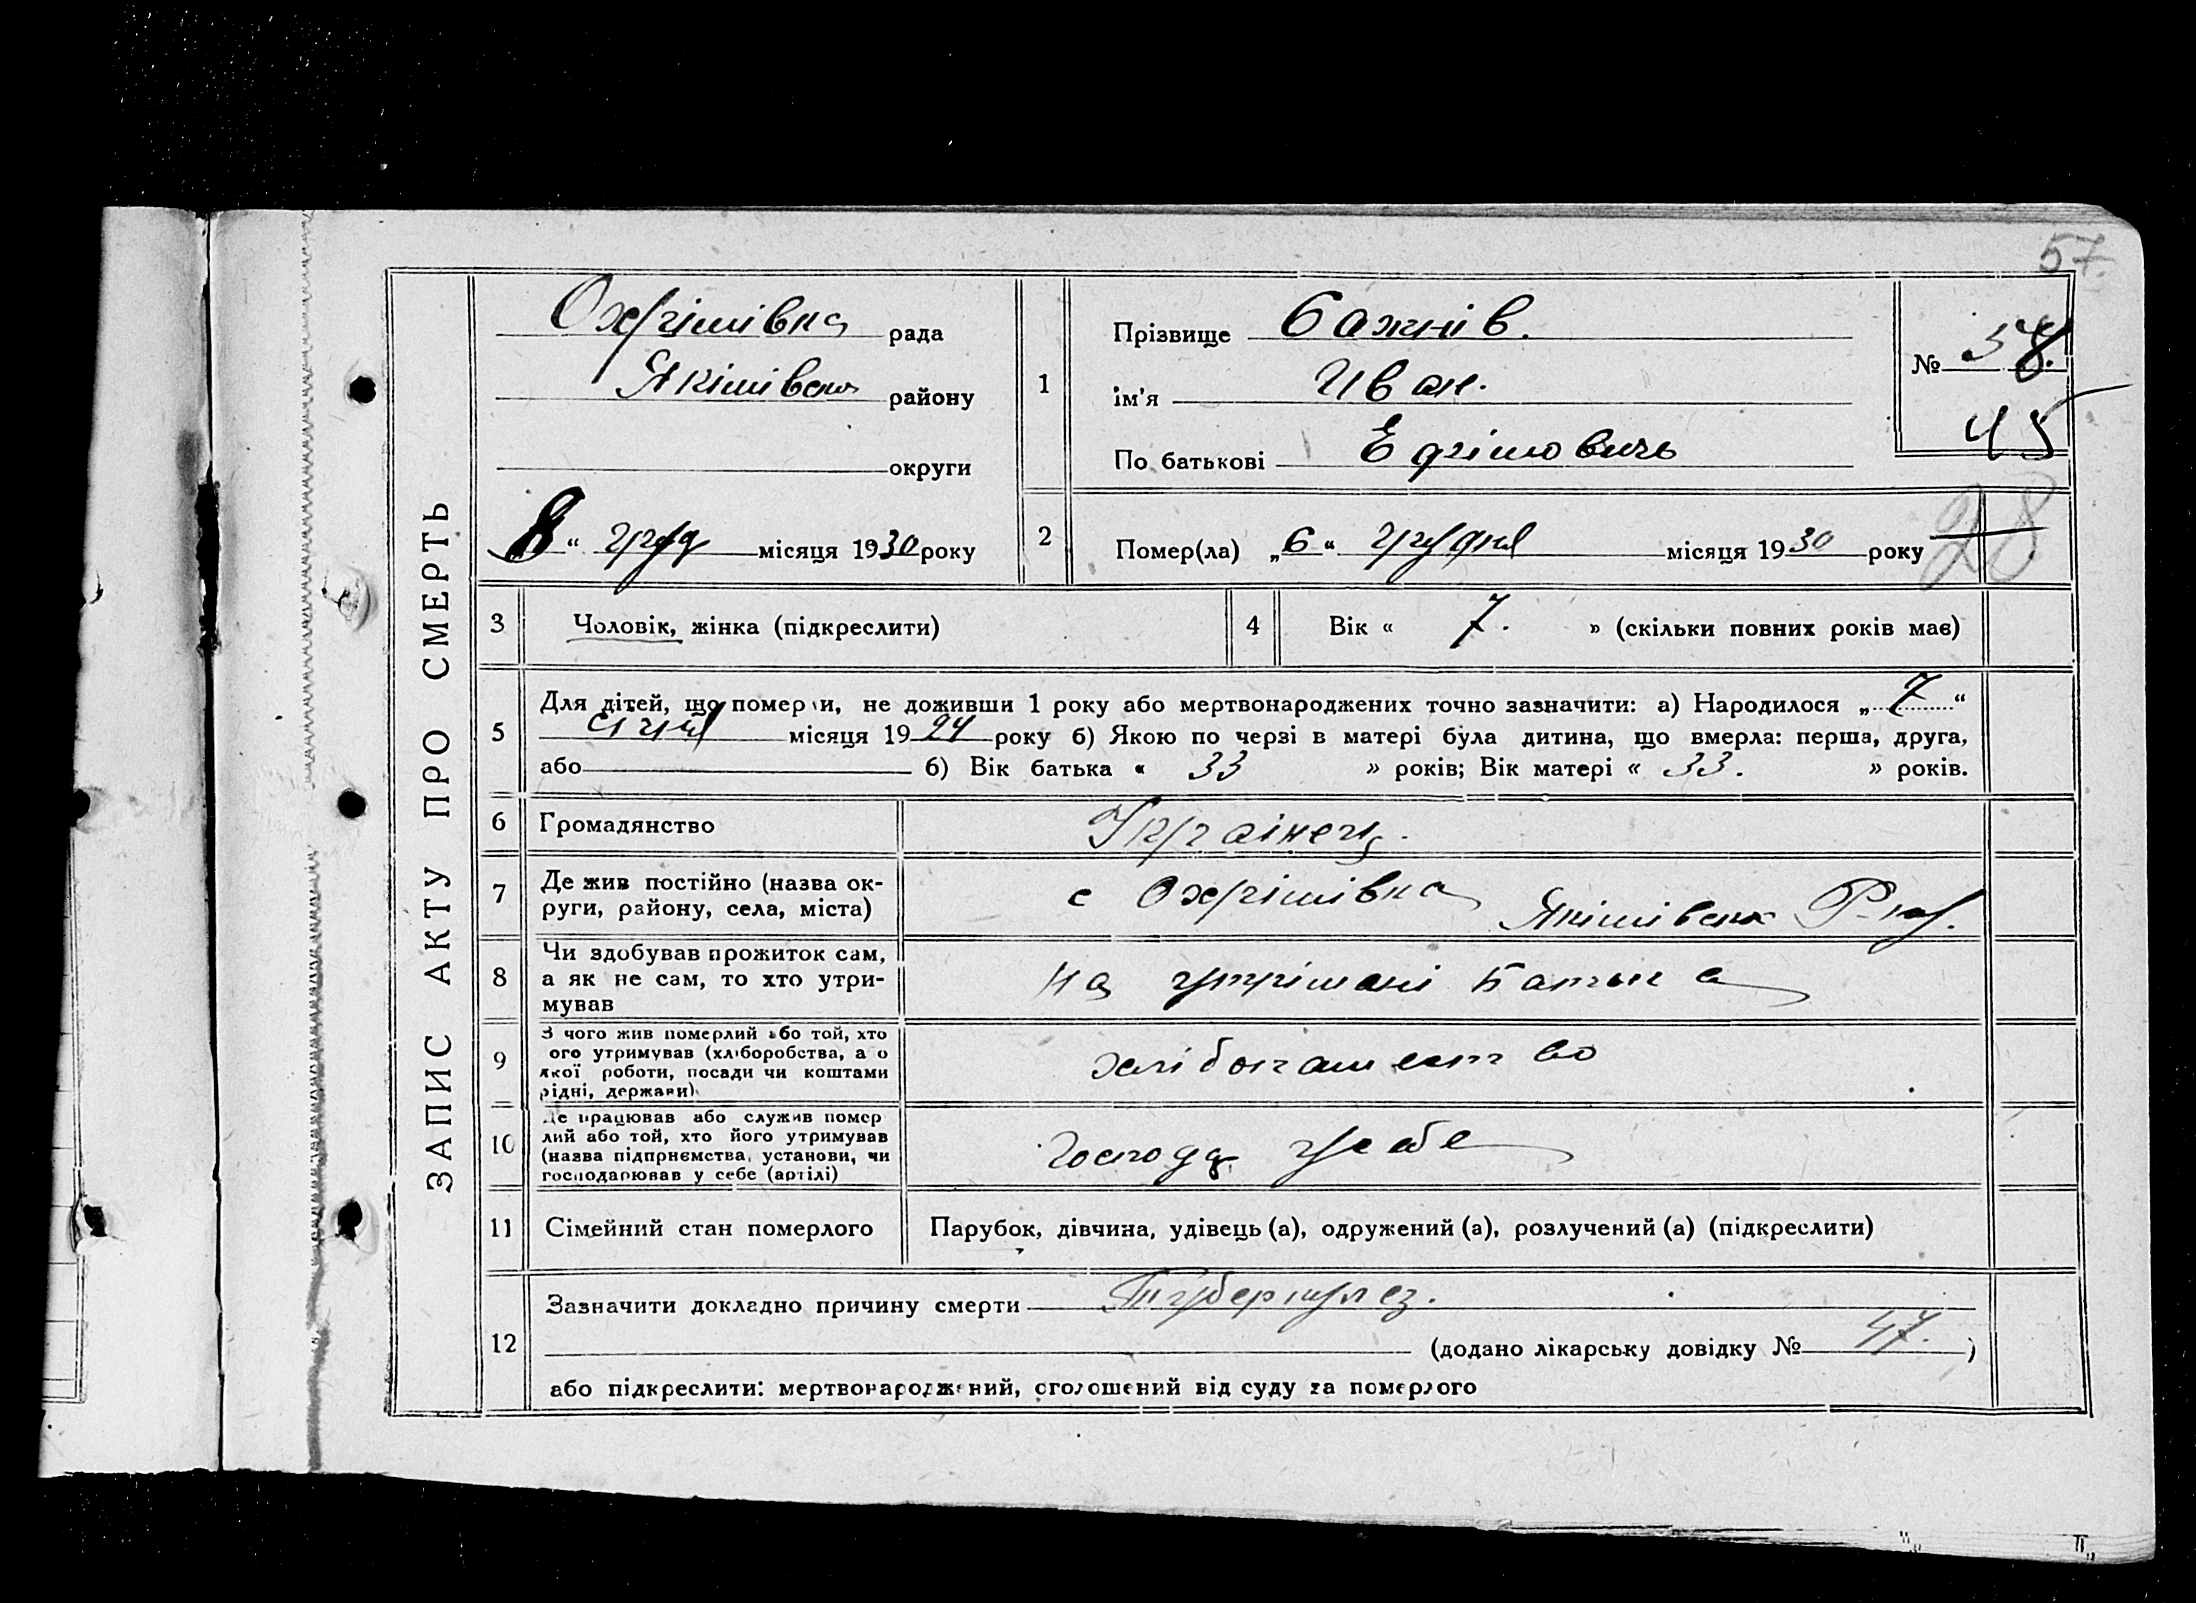 57.
ЗАПИС АКТУ ПРО СМЕРТЬ
Охрімівка рада
Якімівськ району
округи
8 “ груд місяця 1930 року
1
Прізвище Бажнів.
ім'я Иван.
По батькові Ефімовичь
№ 38.
45
28
2
Помер(ла) „6“ грудня місяця 1930 року
3 Чоловік, жінка (підкреслити)
4 Вік « 7. » (скільки повних років має)
5
Для дітей, що померли, не доживши 1 року або мертвонароджених точно зазначити: а) Народилося „7“
січня місяця 1924 року б) Якою по черзі в матері була дитина, що вмерла: перша, друга,
або б) Вік батька « 33 » років; Вік матері « 33. » років.
6 Громадянство Українец.
7 Де жив постійно (назва ок-
руги, району, села, міста)
с Охрімівка Якімівськ Р-ну.
8 Чи здобував прожиток сам,
а як не сам, то хто утри-
мував
на утрімані Батька
9 З чого жив померлий або той, хто
ого утримував (хліборобства, а о
якої роботи, посади чи коштами
рідні, держави)
хлібопашество
10 Де працював або служив помер
лий або той, хто його утримував
(назва підприємства, установи, чи
господарював у себе (артілі)
Господ. у себе
11 Сімейний стан померлого Парубок, дівчина, удівець (а), одружений (а), розлучений (а) (підкреслити)
12
Зазначити докладно причину смерти Туберкулез.
(додано лікарську довідку № 47. )
або підкреслити: мертвонароджений, оголошений від суду за померлого